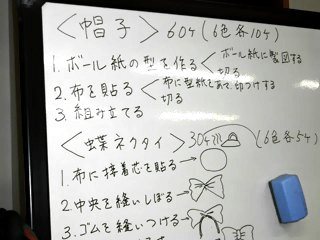 <帽子> 60ヶ(6色各10ヶ)
1.ボール紙の型を作る<ボール紙に製図する
切る
2.布を貼る<布に型紙をあて、印つけする
切る
3.組み立てる
<蝶ネクタイ> 30ヶ (6色各5ヶ)
1.布に接着芯を貼る
2.中央を縫いしぼる
3.ゴムを縫いつける